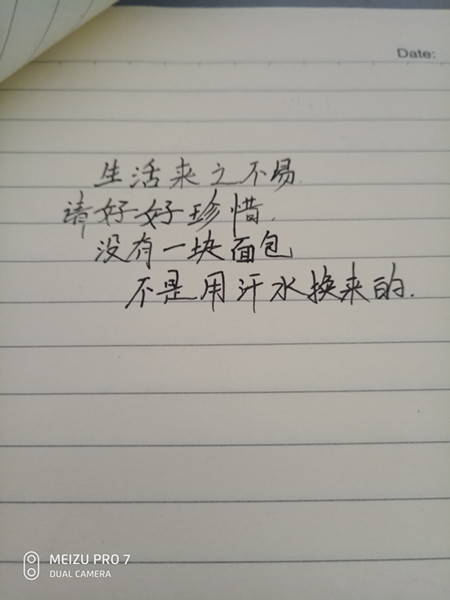 Date:
生活来之不易.
请好好珍惜.
没有一块面包
不是用汗水换来的.
MEIZU PRO 7
DUAL CAMERA